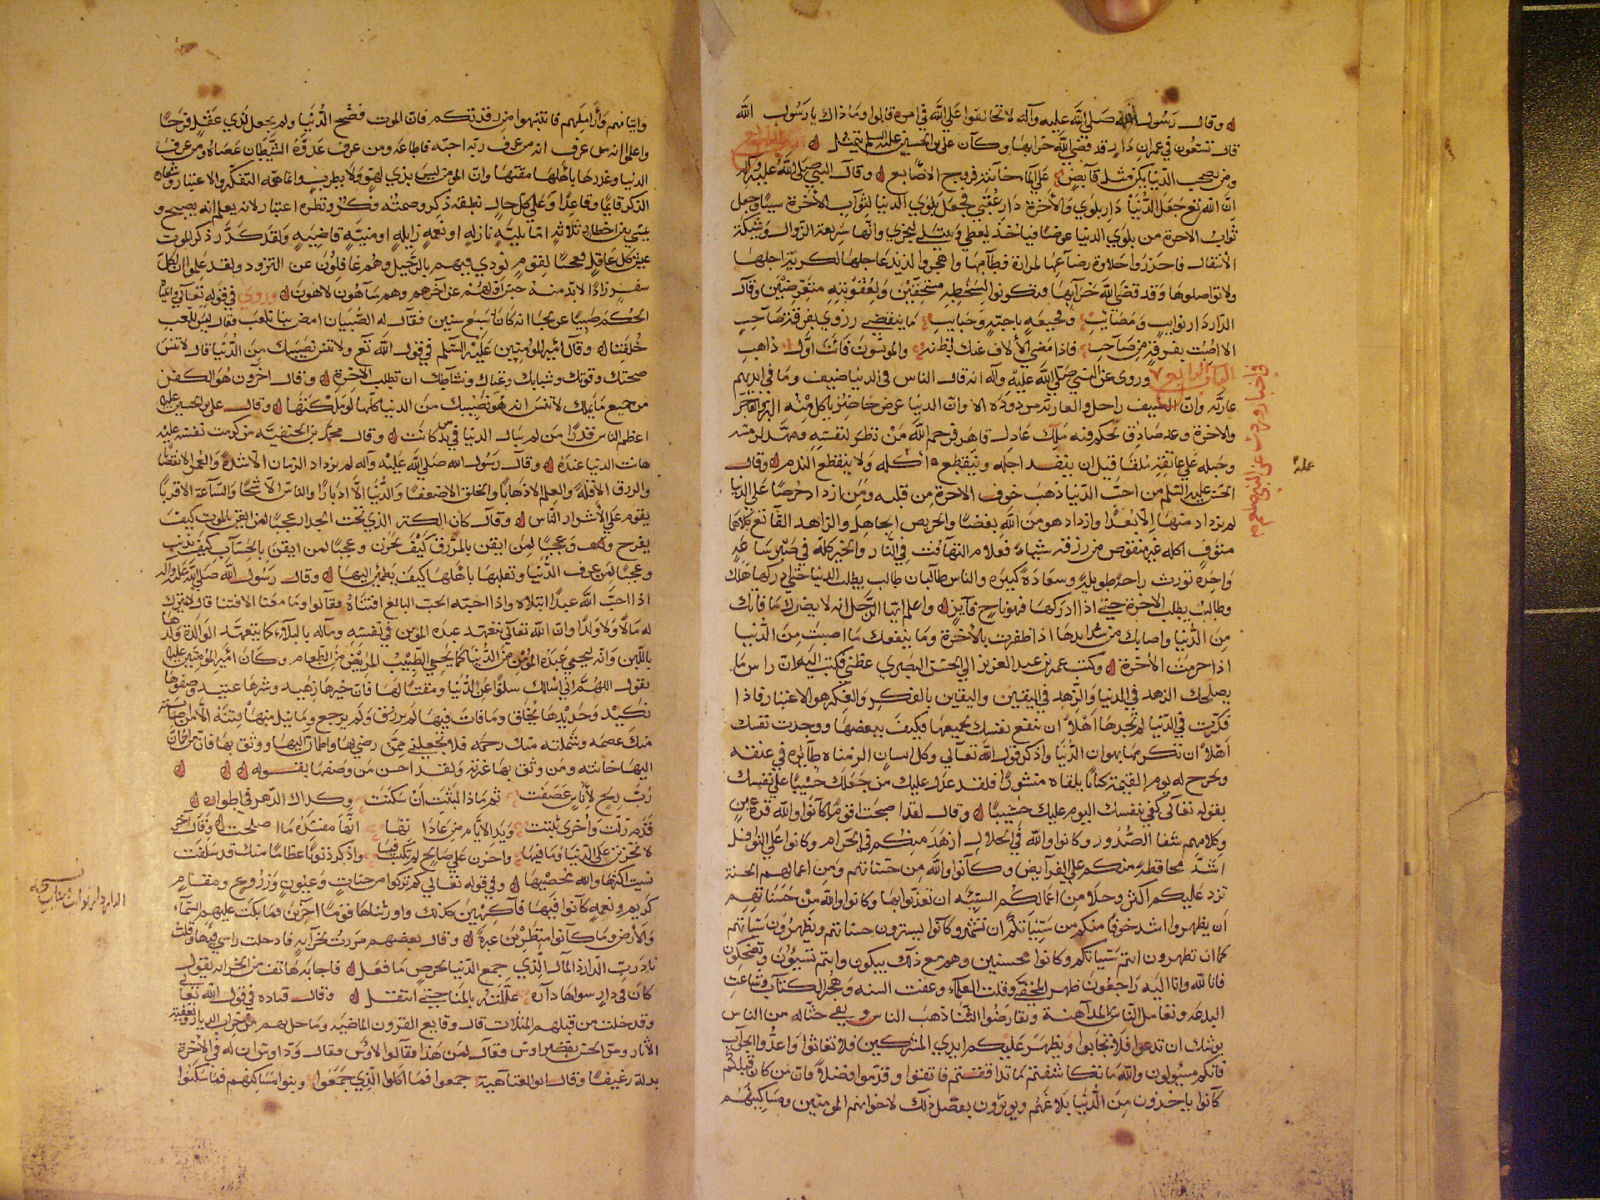 وقال رسول الله صلى الله عليه وآله لا تخالفوا على الله في امره قالوا وما ذاك يا رسول الله
قال تسعون في عمران دار قد قضى الله خرابها وكان علي بن الحسين عليه السلم يتمثل
ومن يصحب الدنيا يكن مثل قابض على الماء خانته فروج الاصابع وقال النبي صلى الله عليه وآله
ان الله تعالى جعل الدنيا دار بلوى والآخرة دار عقبى فجعل بلوى الدنيا لثواب الآخرة سببا وجعل
ثواب الآخرة من بلوى الدنيا عوضا فياخذ ليعطي ويبتلي ليجزي وانها سريعة الزوال وشيكة
الانتقال فاحذروا حلاوة رضاعها لمرارة فطامها واهجروا لذيذ عاجلها لكريه اجلها
ولا تواصلوها وقد قضى الله خرابها فتكونوا لسخطه مستحقين ولعقوبته متعرضين وقال
الدار دار نوايب ومصايب وفجيعة باحبة وحبايب ما ينقضي رزوي بفرقة صاحب
الا اصبت بفرقة من صاحب فاذا مضى الألاف عنك لظعنه والمونسون فانت اول ذاهب
الباب الرابع وروي عن النبي صلى الله عليه وآله انه قال الناس في الدنيا ضيف وما في ايديهم
عارية وان الضيف راحل والعارية مردودة الا وان الدنيا عرض حاضر ياكل منه البر والفاجر
والآخرة وعد صادق يحكم فيه ملك عادل قاهر فرحم الله من نظر لنفسه ومهد لرمسه
وحبله على عاتقه ملقا قبل ان ينفد اجله وينقطع امله ولا ينفع الندم وقال
الحسن عليه السلم من احب الدنيا ذهب خوف الآخرة من قلبه ومن ازداد حرصا على الدنيا
لم يزدد منها الا بعدا وازداد هو من الله بغضا والحريص الجاهل والزاهد القانع كلاهما
مستوف اكله غير منقوص من رزقه شيئا فعلام التهافت في النار والخير كله في صبر ساعة
واحدة تورث راحة طويلة وسعادة كبيرة والناس طالبان طالب يطلب الدنيا حتى اذا ادركها هلك
وطالب يطلب الآخرة حتى اذا ادركها فهو ناج فايز واعلم ايها الرجل انه لا يضرك ما فاتك
من الدنيا واصابك من شدايدها اذا ظفرت بالآخرة وما ينفعك ما اصبت من الدنيا
اذا حرمت الآخرة وكتب عمر بن عبد العزيز الى الحسن البصري عظني فكتب اليه ان راس ما
يصلحك الزهد في الدنيا والزهد في اليقين واليقين بالفكر والفكر هو الاعتبار فاذا
فكرت في الدنيا لم تجدها اهلا ان تنفع نفسك بجميعها فكيف ببعضها ووجدت نفسك
اهلا ان تكرمها بهوان الدنيا واذكر قول الله تعالى وكل انسان الزمناه طايره في عنقه
ونخرج له يوم القيمة كتابا يلقاه منشورا فلقد عدل عليك من جعلك حسيبا على نفسك
بقوله تعالى كفى بنفسك اليوم عليك حسيبا وقال لقد صحبت اقواما كانوا والله قرة عين
وكلامهم شفا الصدور وكانوا والله في الحلال ازهد منكم في الحرام وكانوا على النوافل
اشد محافظة منكم على الفرايض وكانوا والله من حسناتهم ومن اعمالهم الحسنة
ترد عليهم اكثر وجلا من اعمالكم السيئة ان تعذبوا بها وكانوا والله من حسناتهم
ان يظهروا اشد خوفا منكم من سيئاتكم ان تشتهر وكانوا يسترون حسناتهم ويظهرون سيئاتهم
كما ان تظهرون انتم سيئاتكم وكانوا محسنين وهم مع ذلك يبكون وانتم تسيئون وتضحكون
فانا لله وانا اليه راجعون ظهر الجفا وقلت العلماء وعفت السنه وهجر الكتاب وشاعت
البدعه وتعامل الناس بالمداهنة وتقارضوا الثنا ذهب الناس وبقي حثاله من الناس
يوشك ان تدعوا فلا تجابوا ويظهر عليكم ايدي المشركين فلا تغاثوا واعدوا الجواب
فانكم مسئولون والله ما تكاشفتم بما تدافنتم فاتقوا وقدموا فضلا فان من كان قبلكم
كانوا ياخذون من الدنيا بلاغهم ويوثرون بفضل ذلك لاخوانهم المؤمنين ومساكينهم
في اخبار وردت عن النبي صلعم
وايتامهم واراملهم فانتبهوا من رقدتكم فان الموت فضح الدنيا ولم يجعل لذي عقل فرحا
واعلموا انه من عرف ربه احبه فاطاعه ومن عرف عدوه الشيطان عصاه ومن عرف
الدنيا وغدرها باهلها مقتها وان المؤمن ليس بذي لهو ولا بطر وانما همه التفكر والاعتبار وشعاره
الذكر قايما وقاعدا وعلى كل حال نطقه ذكر وصمته وفكر ونظره اعتبار لانه يعلم انه يصبح و
يمسي بين اخطار ثلاثه اما بلية نازلة او نعمة زايلة او منية قاضية ولقد كدر ذكر الموت
عيش كل عاقل فعجبا لقوم نودي فيهم بالرحيل وهم غافلون عن التزود ولقد علموا ان لكل
سفر زادا لابد منه حبس اولهم عن اخرهم وهم ساهون لاهون وروي في قوله تعالى واتيناه
الحكم صبيا عن يحيى انه كان له سبع سنين فقال له الصبيان امض بنا نلعب فقال ليس للعب
خلقنا وقال امير المؤمنين عليه السلم في قول الله تعالى ولا تنس نصيبك من الدنيا قال لا تنس
صحتك وقوتك وشبابك وغناك ونشاطك ان تطلب الآخرة وقال اخرون هو الكفن
من جميع ما تملك لا تنس انه هو نصيبك من الدنيا كلها لو ملكتها وقال علي بن الحسين عليه
اعظم الناس قدرا من لم يبال الدنيا في يد من كانت وقال محمد بن الحنفيه من كرمت نفسه عليه
هانت الدنيا عنده وقال رسول الله صلى الله عليه وآله لا يزداد الزمان الا شدة والعمر الا نقصانا
والرزق الا قلة والعلم الا ذهابا والخلق الا ضعفا والدنيا الا ادبارا والناس الا شحا والساعة الا قربا
يقوم على الاشرار الناس وقال كان الكنز الذي تحت الجدار عجبا لمن ايقن بالموت كيف
يفرح وعجبا لمن ايقن بالرزق كيف يحزن وعجبا لمن ايقن بالحساب كيف يذنب
وعجبا لمن عرف الدنيا وتقلبها باهلها كيف يطمئن اليها وقال رسول الله صلى الله عليه وآله
اذا احب الله عبدا ابتلاه واذا احبه الحب البالغ افتناه فقالوا وما معنا الافتنا قال لا يترك
له مالا ولا ولدا وان الله تعالى يتعهد عبده المؤمن في نفسه وماله بالبلاء كما يتعهد الوالدة ولدها
باللبن وانه ليحمي عبده المؤمن من الدنيا كما يحمي الطبيب المريض من الطعام وكان امير المؤمنين عليه
يقول اللهم اني اسالك سلوا عن الدنيا ومقتا لها فان خيرها زهيد وشرها عتيد وصفوها
تكيد وجديدها يخلق وما فات فيها لم يرجع وما نيل منها فتنة الا من اصابته
منك عصمه وشملته منك رحمه فلا تجعلني ممن رضي بها واطمان اليها ووثق بها فان من اطمان
اليها خانته ومن وثق بها غرته ولقد احسن من وصفها بقوله
رب ريح لأناس عصفت ثم ما ان لبثت ان سكنت وكذاك الدهر في اطواره
قدم زلت واخرى ثبتت ويد الايام من عاداتها انها مفسدة ما اصلحت وقال اخر
لا تحزنن على الدنيا وما فيها واحزن على صالح لم يكتسب فيها واذكر ذنوبا عظاما منك قد سلفت
نسيت اكثرها والله يحصيها وفي قوله تعالى كم تركوا من جنات وعيون وزروع ومقام
كريم ونعمة كانوا فيها فاكهين كذلك واورثناها قوما اخرين فما بكت عليهم السماء
والارض وما كانوا منظرين عبرة وقال بعضهم مررت بخرابه فادخلت راسي فيها وقلت
ناد رب الدار ذا المال الذي جمع الدنيا بحرص ما فعل فاجابه هاتف من الخرابه يقول
كان في دار سواها داره عللته بالمنا حتى انتقل وقال قتاده في قول الله تعالى
وقد خلت من قبلهم المثلات قال وقايع القرون الماضيه وما حل بهم من خراب الديار وتعفيه
الآثار ومر الحسن بقصر اوس فقال لمن هذا فقالوا لاوس فقال ود اوس ان له في الآخرة
بدله رغيفا وقال ابو العتاهية جمعوا فما اكلوا الذي جمعوا وبنوا مساكنهم فما سكنوا